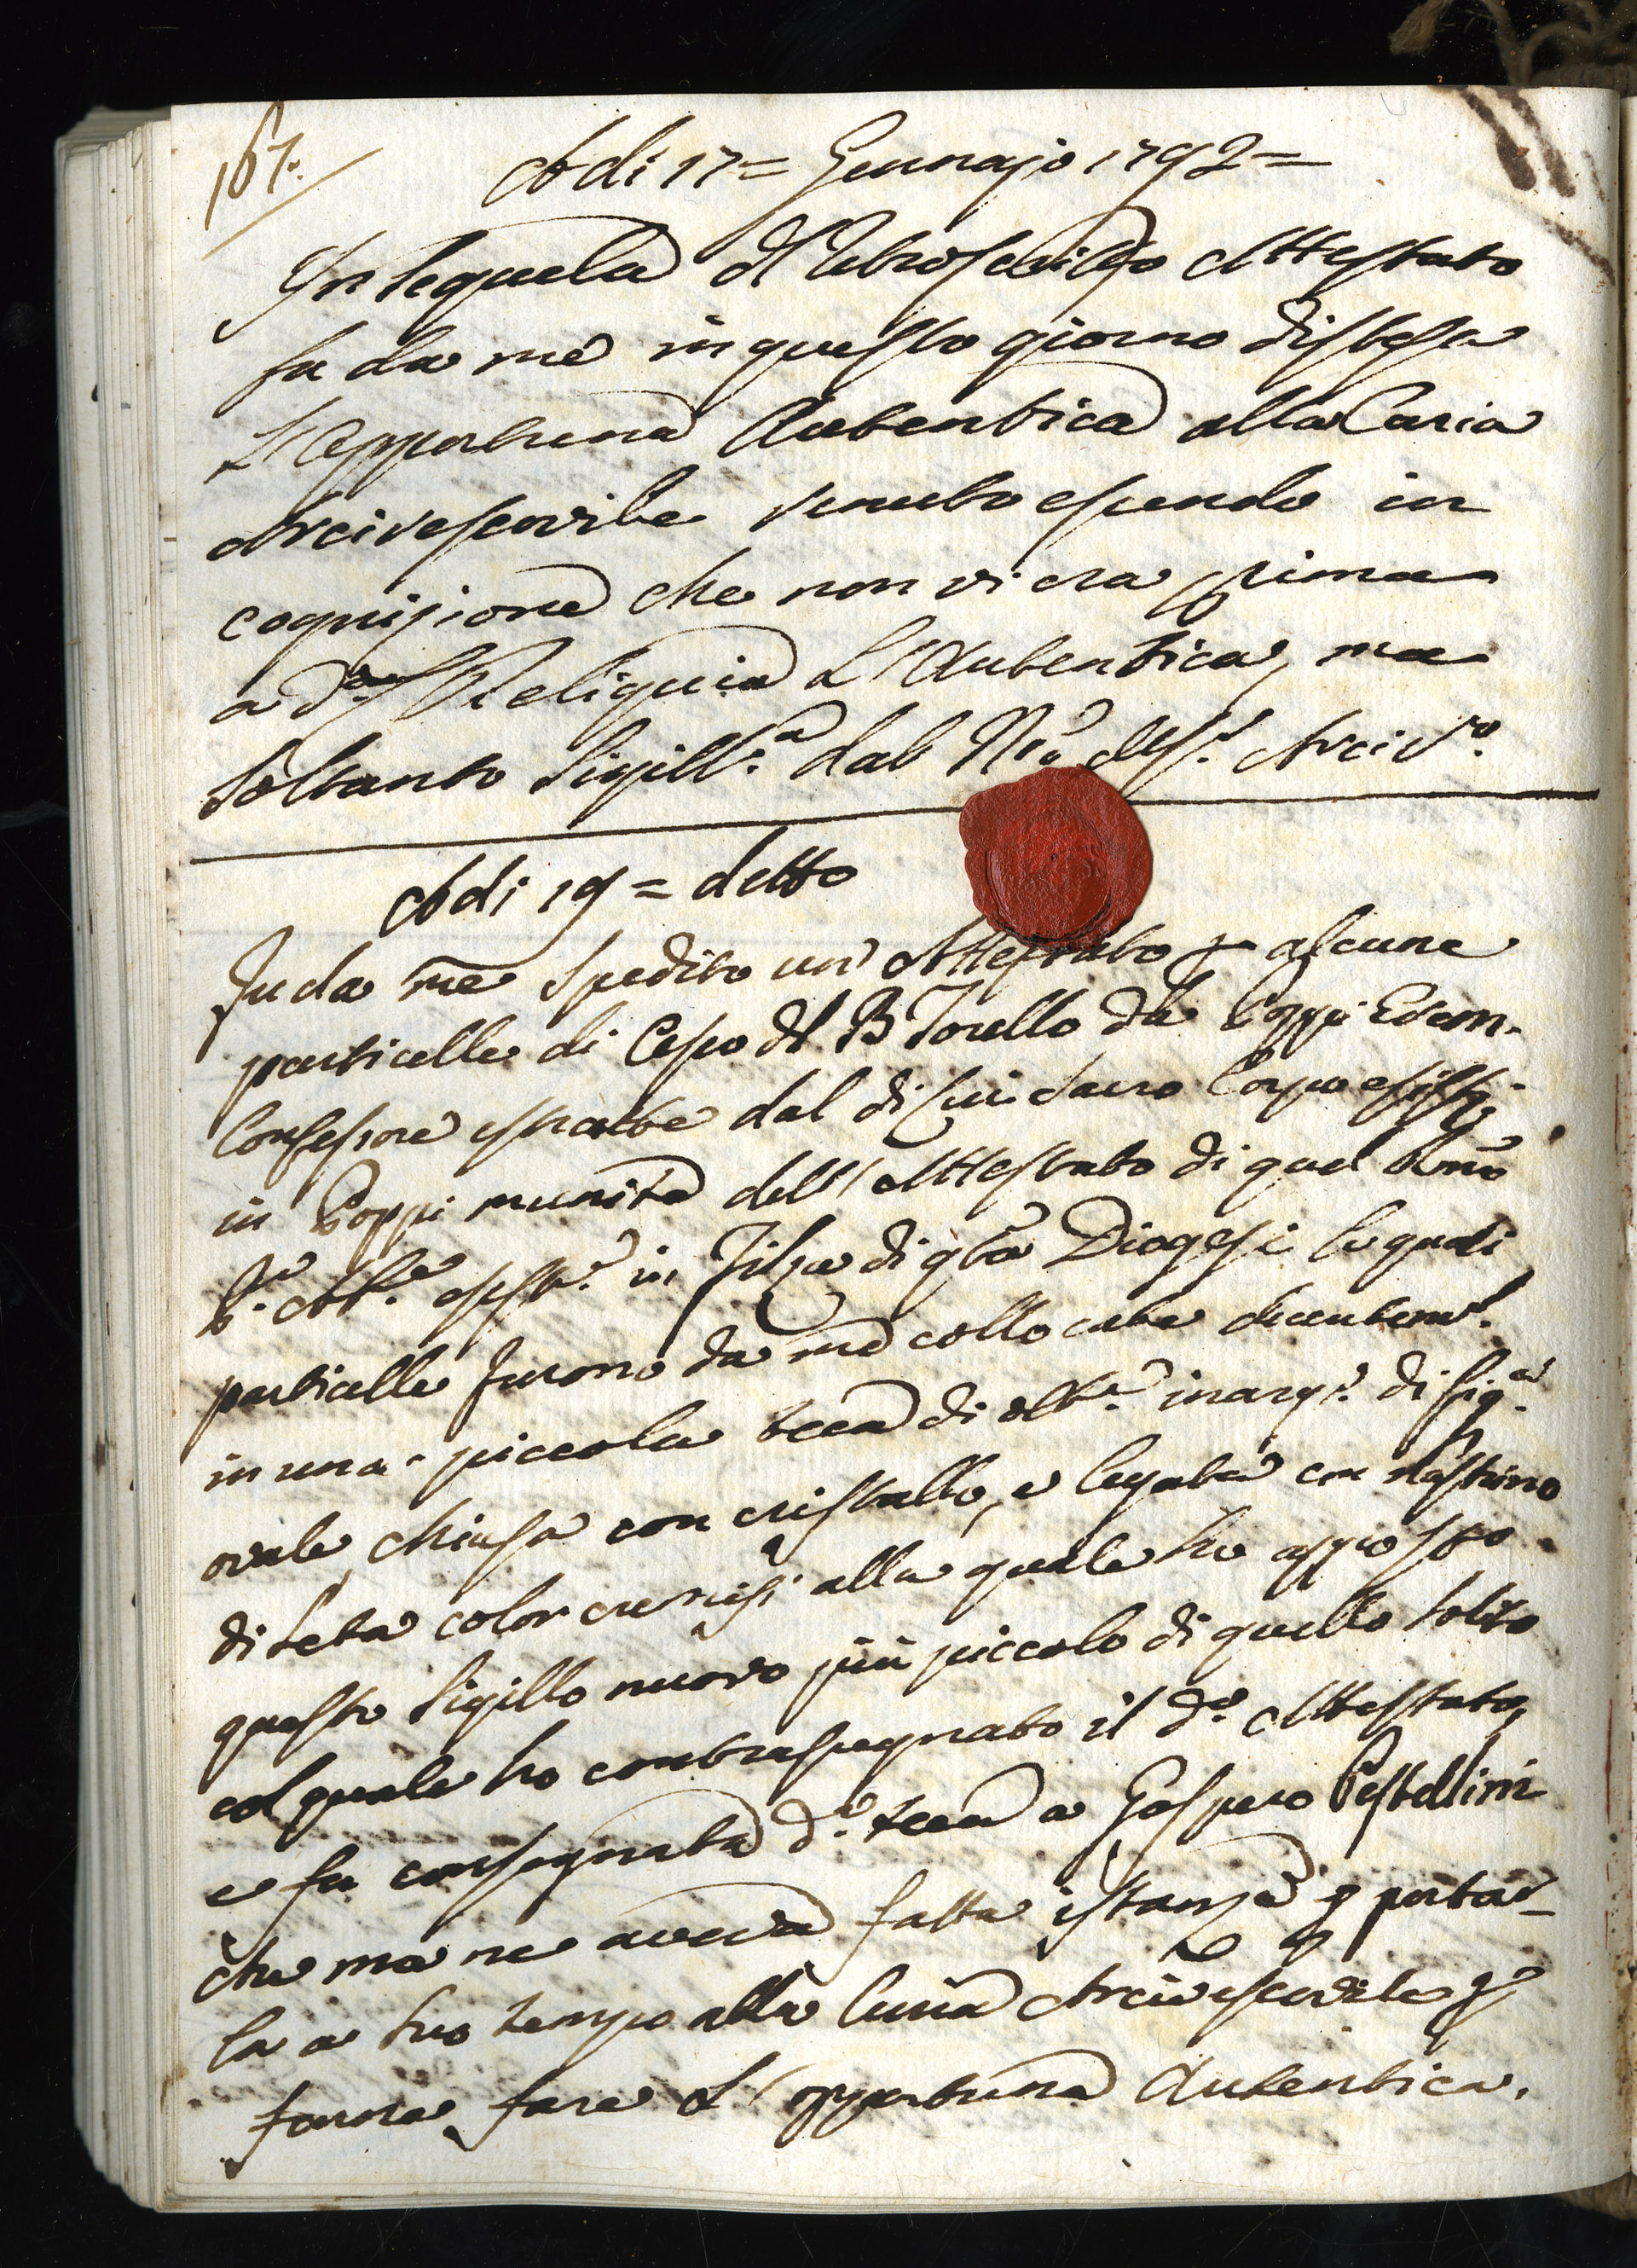 167.
Adi 17 = Gennajo 1792 =
In sequela dl retroscritto Attestato
fu da me in questo giorno distesa
L'opportuna Autentica alla Curia
Arcivescovile venuto essendo in
cognizione che non vi era prima
a dª Reliquia L'Autentica, ma
soltanto sigillª. dal Arcivº.
Adi 19 = detto
Fu da me spedito un' Attestato p alcune
particelle di Capo dl B Torello da Poppi Erem.
Confessore estratte dal di lui Sacro Corpo
in Poppi munita dell'Attestato di quel Rmo
in Filza di qta Diogesi le quali
particelle furono da me collocate decentemt.
in una piccola teca di inargª. di figª.
ovale, chiusa con cristallo, e legata con nastrino
di seta color cremisi alla quale ho apposto
questo sigillo nuovo più piccolo di quello solito
col quale ho contrasegnato il dº. Attestato,
e fu consegnata dª. teca a Gaspero Pestellini
che me ne aveva fatta istanza p portar-
la a suo tempo alla Curia Arcivescovile p
farne fare L'opportuna Autentica.